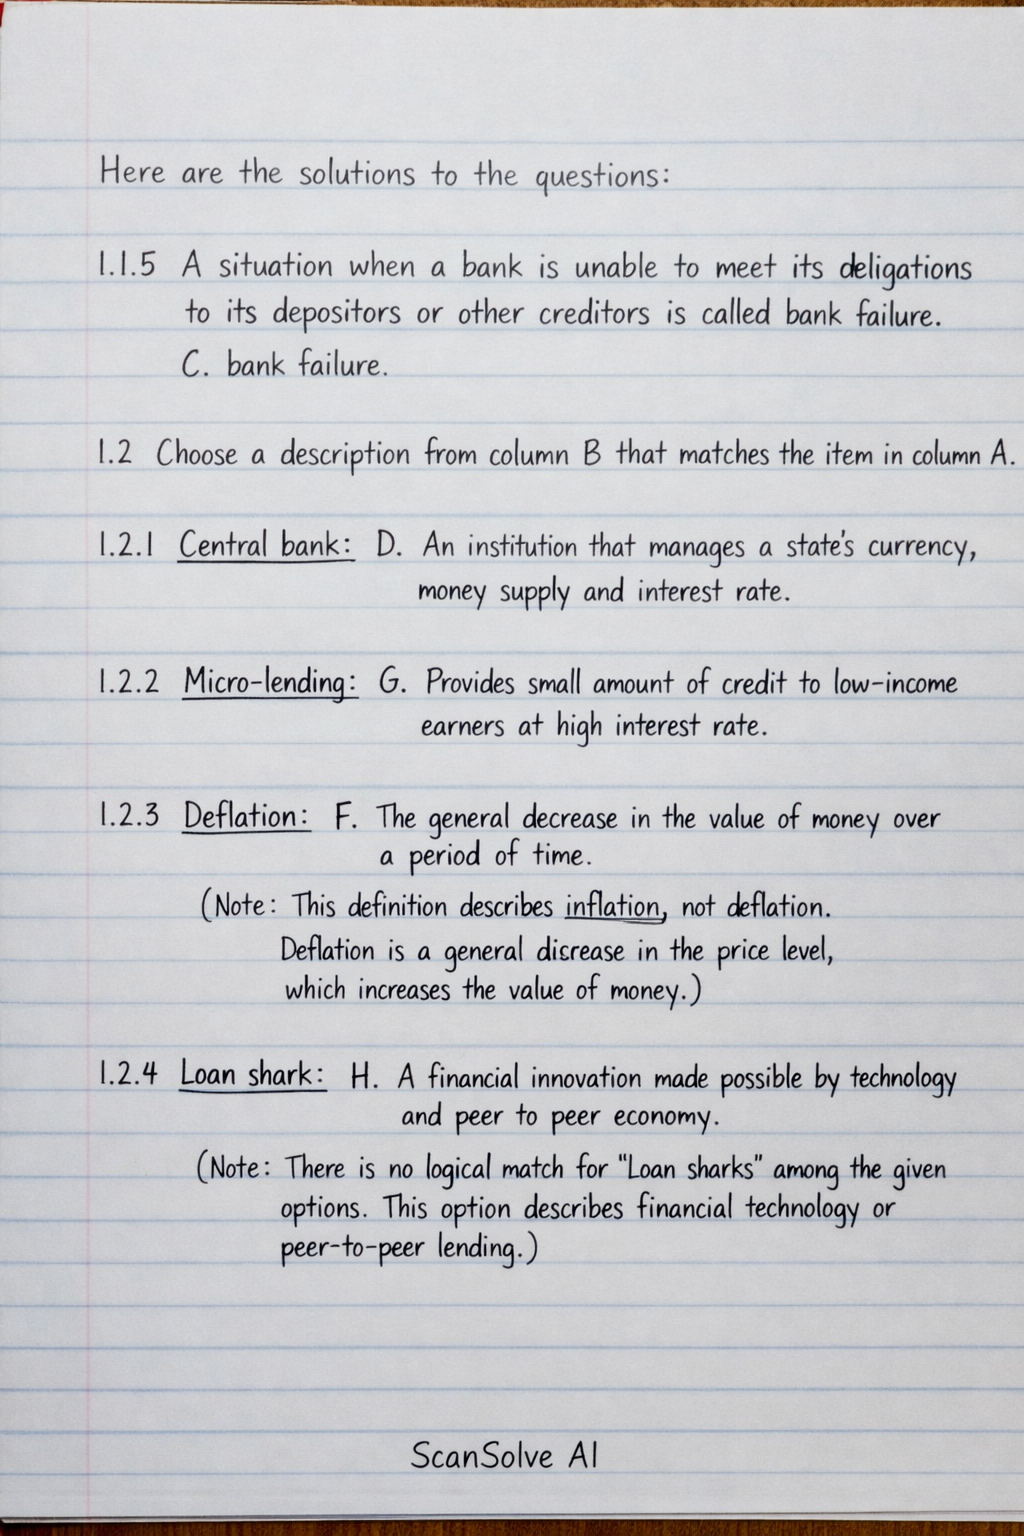 Here are the solutions to the questions:
1.1.5 A situation when a bank is unable to meet its deligations
to its depositors or other creditors is called bank failure.
C. bank failure.
1.2 Choose a description from column B that matches the item in column A.
1.2.1 Central bank: D. An institution that manages a state's currency,
money supply and interest rate.
1.2.2 Micro-lending: G. Provides small amount of credit to low-income
earners at high interest rate.
1.2.3 Deflation: F. The general decrease in the value of money over
a period of time.
(Note: This definition describes inflation, not deflation.
Deflation is a general dicrease in the price level,
which increases the value of money.)
1.2.4 Loan shark: H. A financial innovation made possible by technology
and peer to peer economy.
(Note: There is no logical match for "Loan sharks" among the given
options. This option describes financial technology or
peer-to-peer lending.)
ScanSolve AI